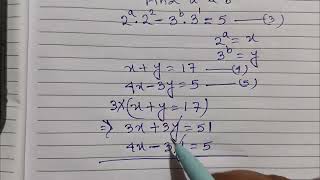 2^a · 2^2 − 3^b · 3^1 = 5 — (3)
2^a = x
3^b = y
x + y = 17 — (4)
4x − 3y = 5 — (5)
3x(x + y = 17)
⇒ 3x + 3y = 51
4x − 3y = 5